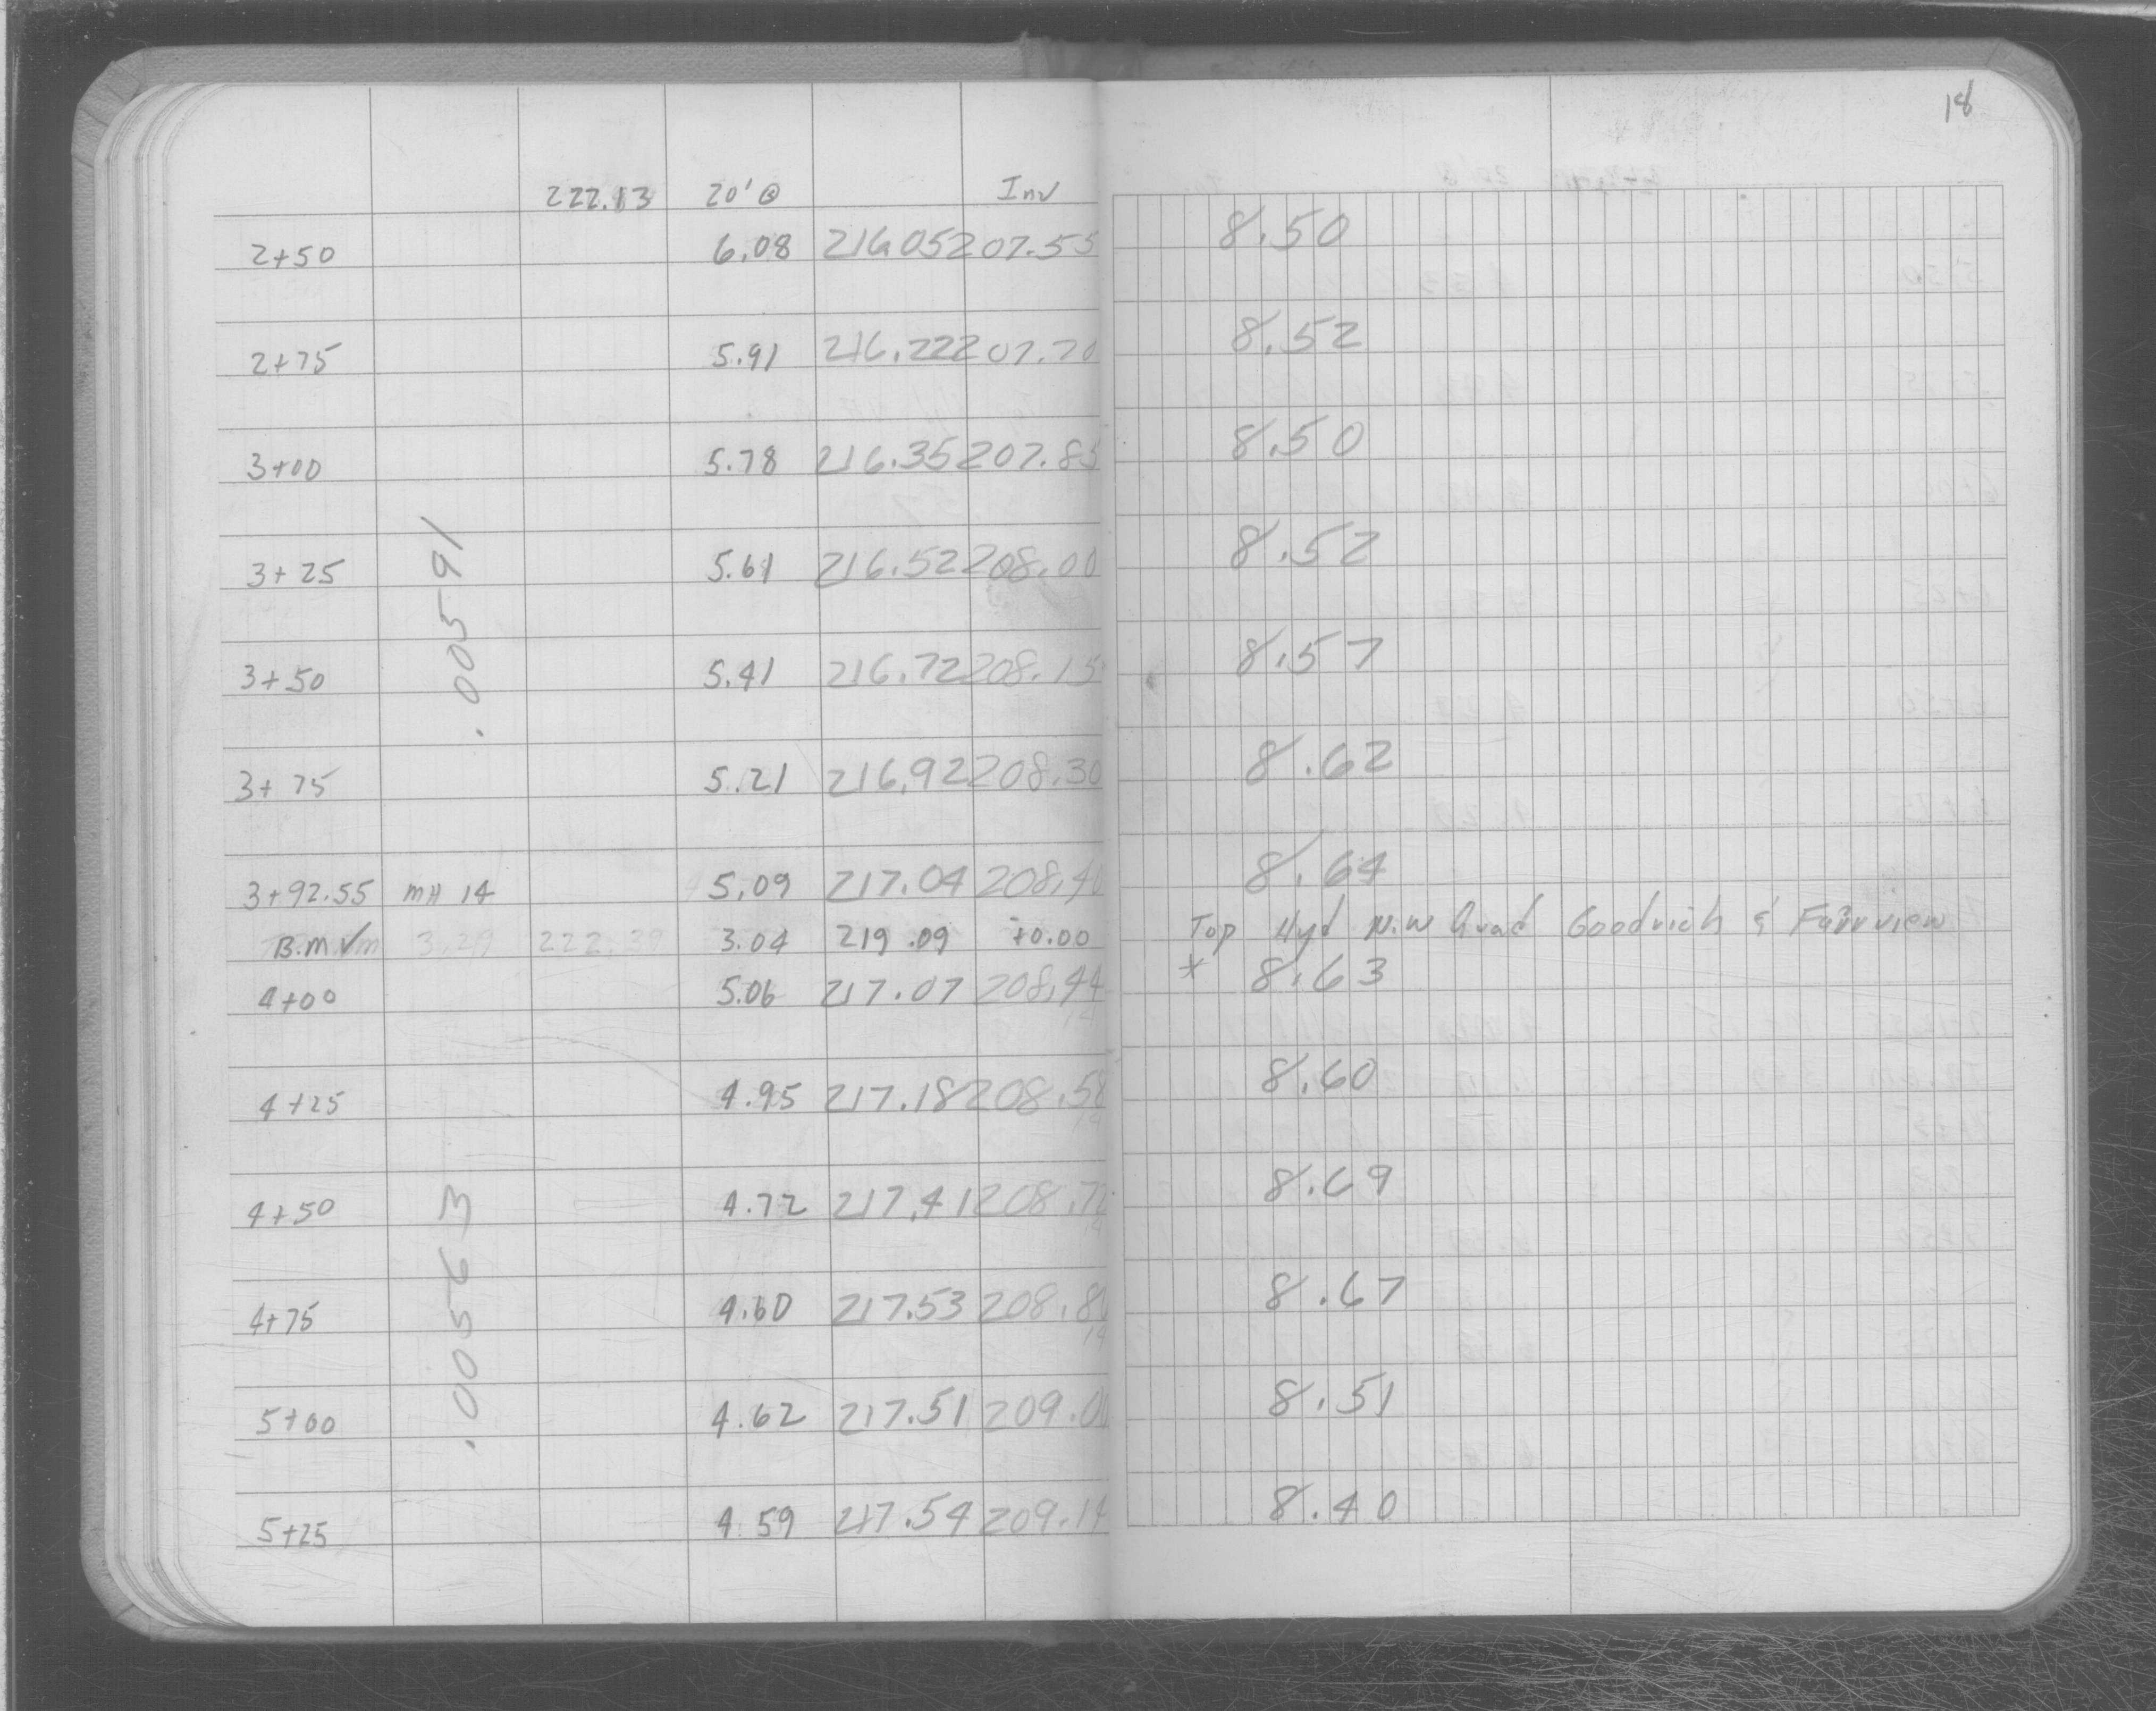 18
222.13 20'@ Inv
2+50 6.08 216.05 207.55 8.50
2+75 5.91 216.22 207.70 8.52
3+00 5.78 216.35 207.85 8.50
3+25 5.61 216.52 208.00 8.52
.00591
3+50 5.41 216.72 208.15 8.57
3+75 5.21 216.92 208.30 8.62
3+92.55 MH 14 5.09 217.04 208.40 8.64
B.M 3.29 222.39 3.04 219.09 +0.00 Top Hyd N.W Quad Goodrich & Fairview
4+00 5.06 217.07 208.44 * 8.63
4+25 4.95 217.18 208.58 8.60
4+50 4.72 217.41 208.72 8.69
.00563
4+75 4.60 217.53 208.86 8.67
5+00 4.62 217.51 209.00 8.51
5+25 4.59 217.54 209.14 8.40